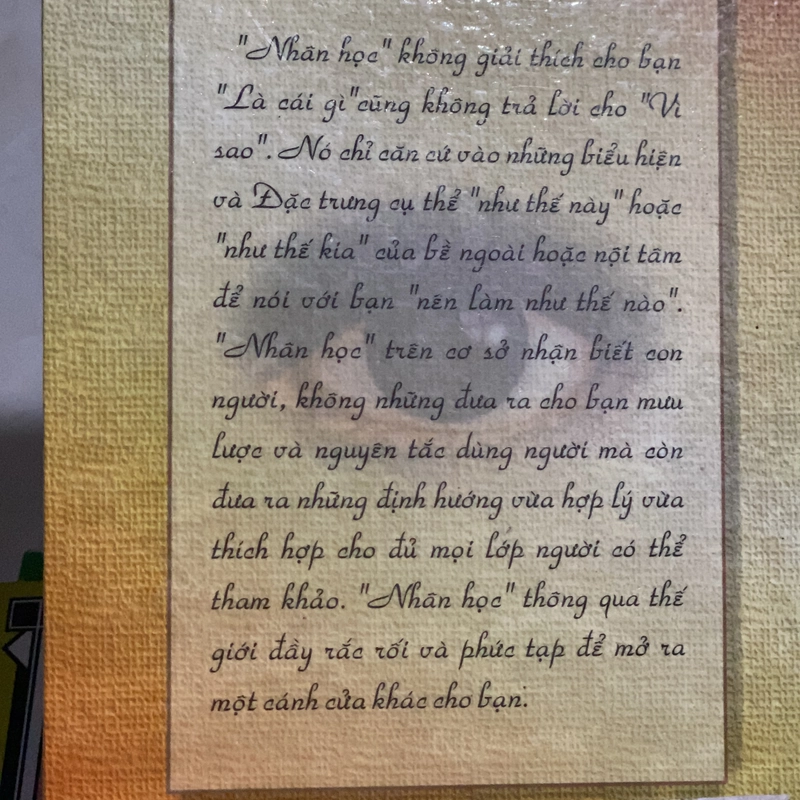 "Nhân học" không giải thích cho bạn
"Là cái gì"cũng không trả lời cho "Vì
sao". Nó chỉ căn cứ vào những biểu hiện
và Đặc trưng cụ thể "như thế này" hoặc
"như thế kia" của bề ngoài hoặc nội tâm
để nói với bạn "nên làm như thế nào".
"Nhân học" trên cơ sở nhận biết con
người, không những đưa ra cho bạn mưu
lược và nguyên tắc dùng người mà còn
đưa ra những định hướng vừa hợp lý vừa
thích hợp cho đủ mọi lớp người có thể
tham khảo. "Nhân học" thông qua thế
giới đầy rắc rối và phức tạp để mở ra
một cánh cửa khác cho bạn.